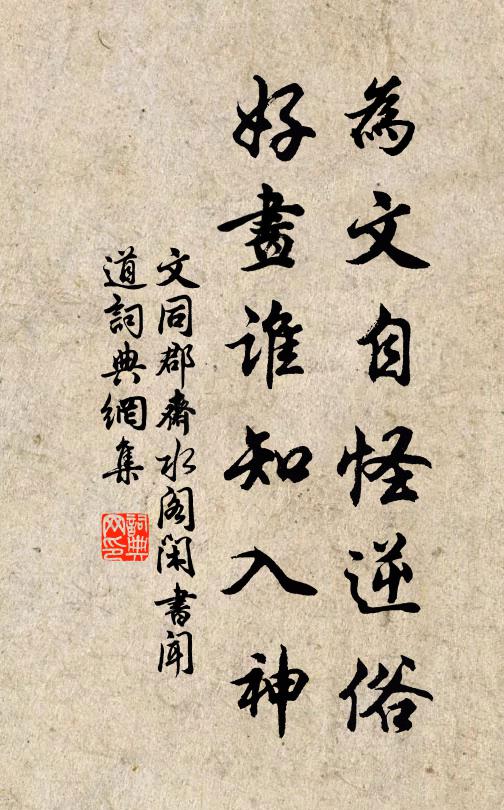 為文自怪逆俗
好畫誰知入神
文同郡齋水阁閑書聞
道詞典網集
詞典网印